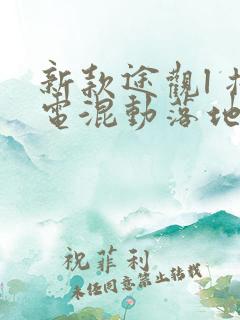 新款途觀l
電混動落地
祝菲利
未任同意禁止轉載